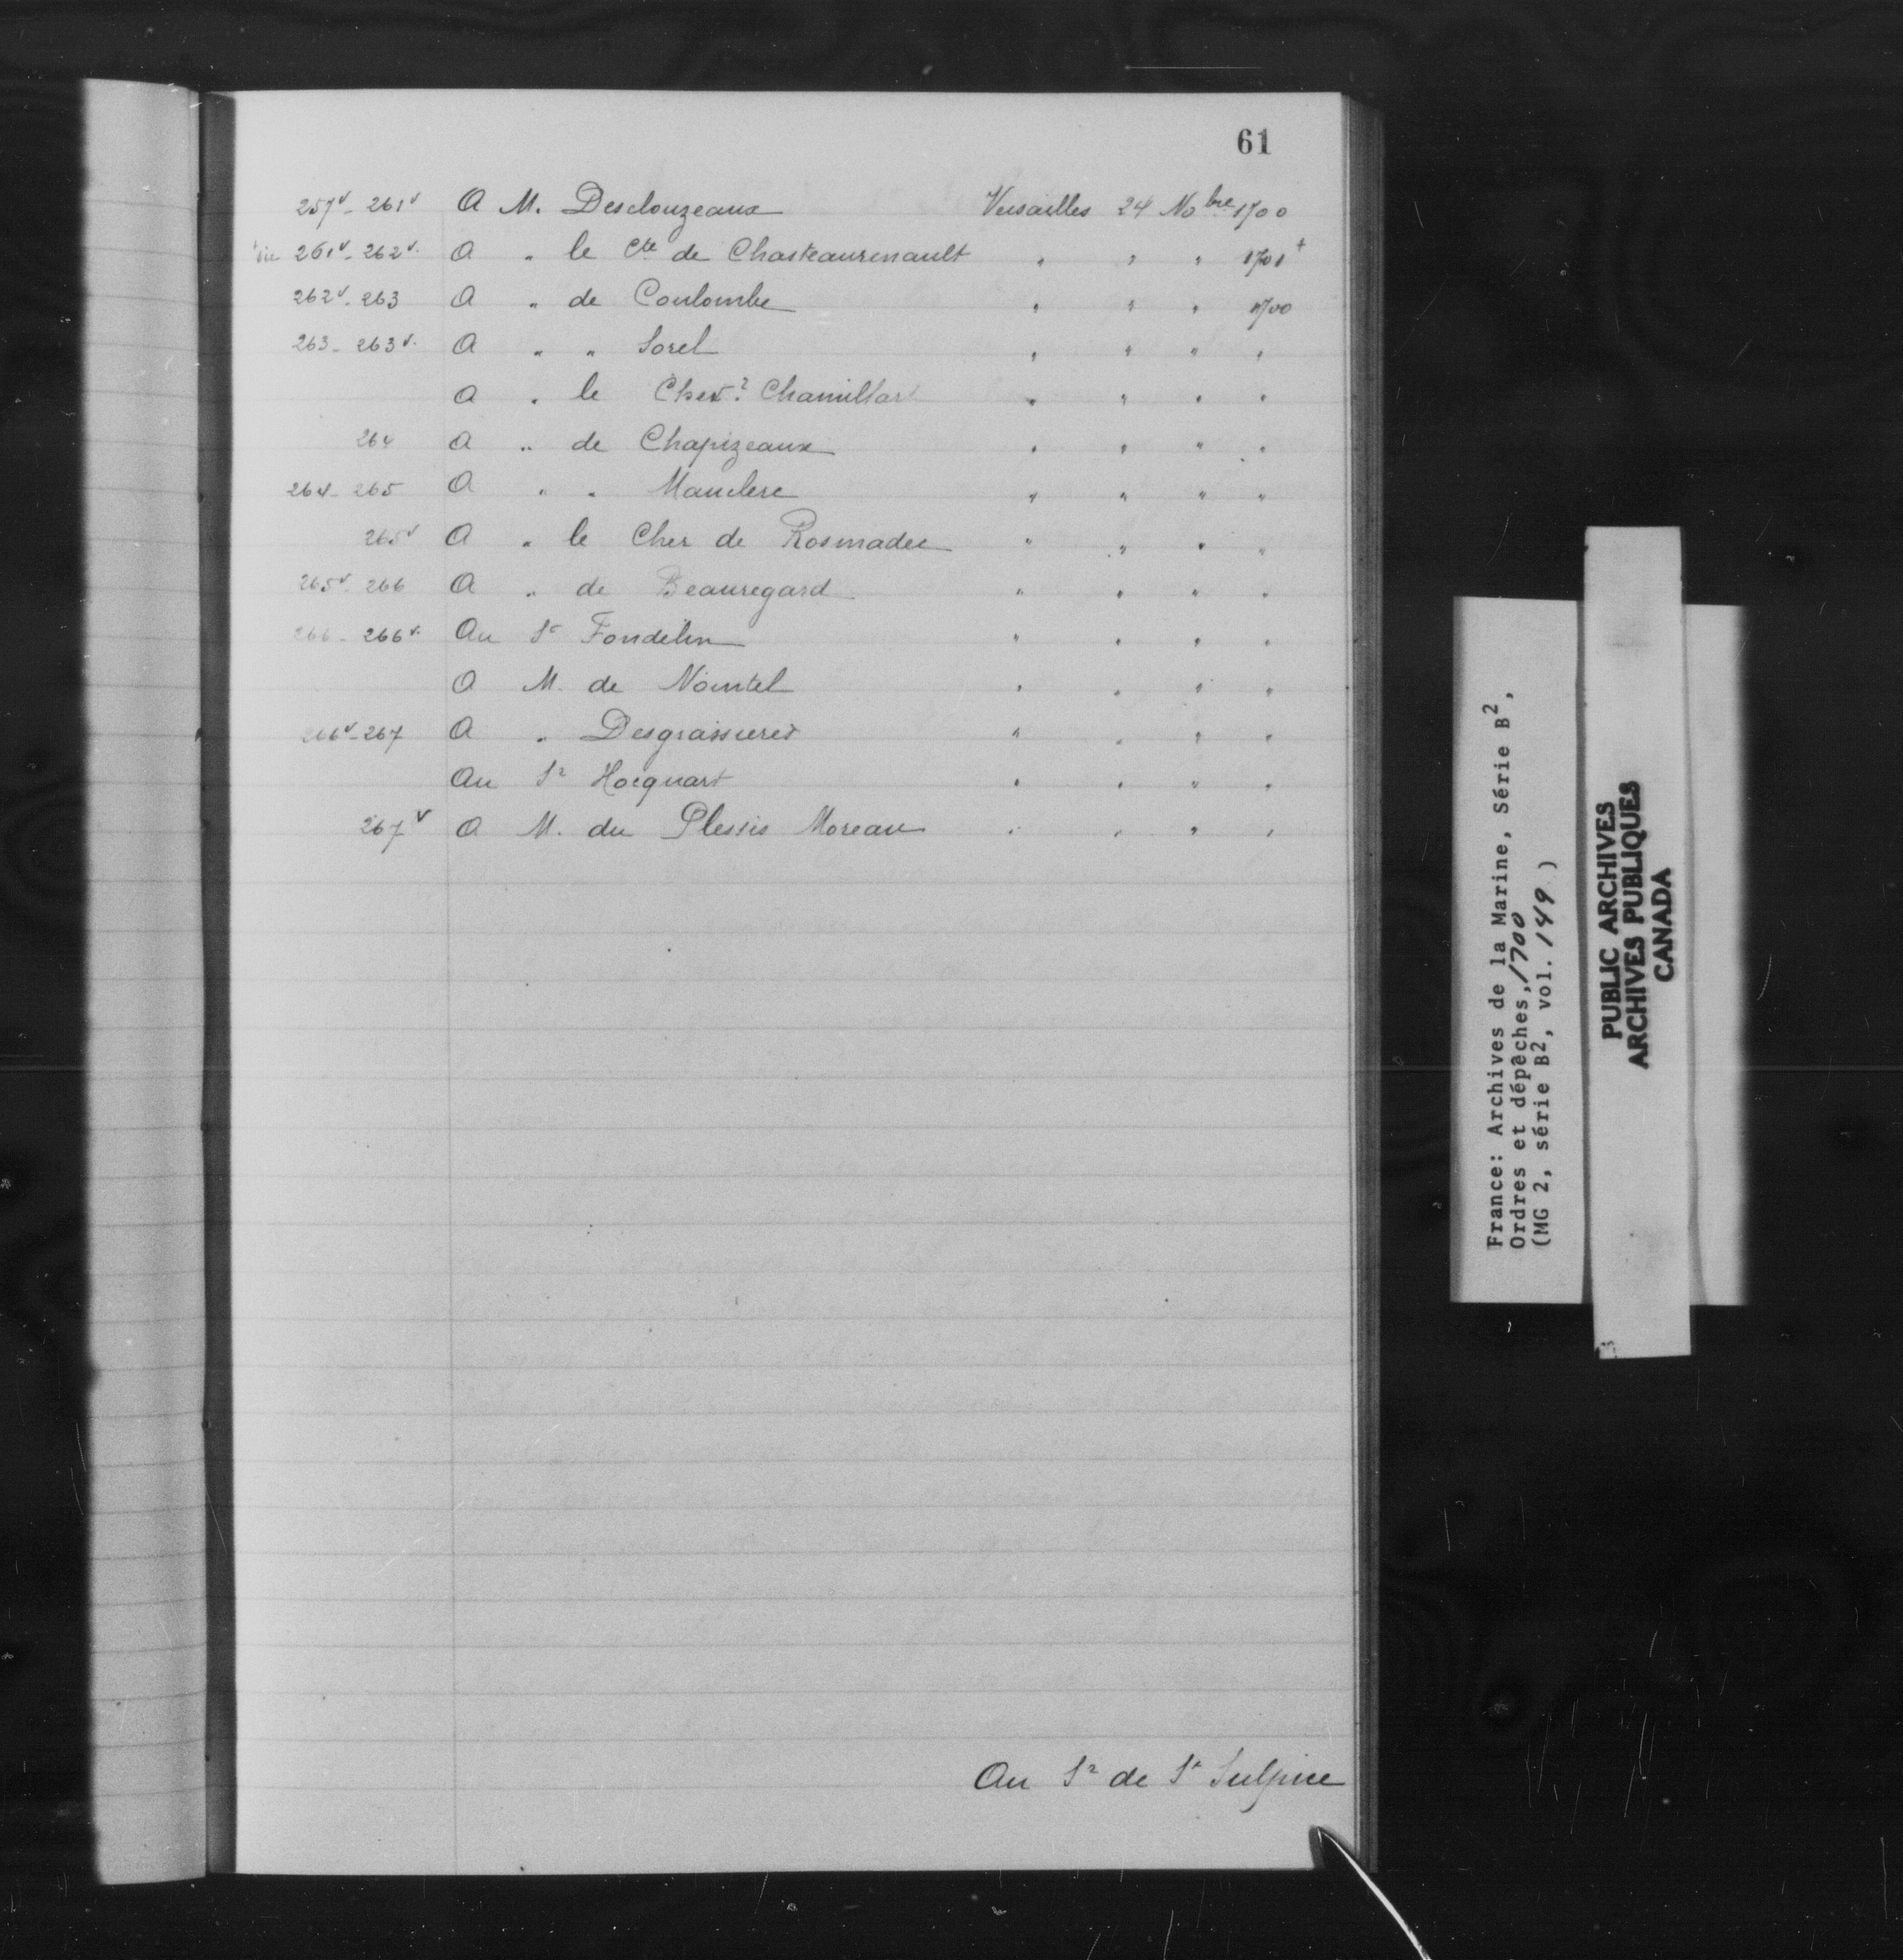 61
257v - 261v A M. Desclouzeaux Versailles 24 Nobre 1700
261v - 262v. A " le Cte de Chasteaurenault " " " 1701 +
262v - 263 A " de Coulombe " " " 1700
263 - 263v. A " " Sorel " " " "
A " le Chevr. Chamillart " " " "
264 A " de Chapizeaux " " " "
264 - 265 A " " Mauclere " " " "
265v A " le Cher de Rosmadec " " " "
265v - 266 A " de Beauregard " " " "
266 - 266v. Au Sr Fondelin " " " "
A M. de Nointel " " " "
266v - 267 A " Desgrassieres " " " "
Au Sr Hocquart " " " "
267v A M. du Plessis Moreau " " " "
Au Sr de St Sulpice
France: Archives de la Marine, Série B2,
Ordres et dépêches, 1700
(MG 2, série B2, vol. 149 )
PUBLIC ARCHIVES
ARCHIVES PUBLIQUES
CANADA